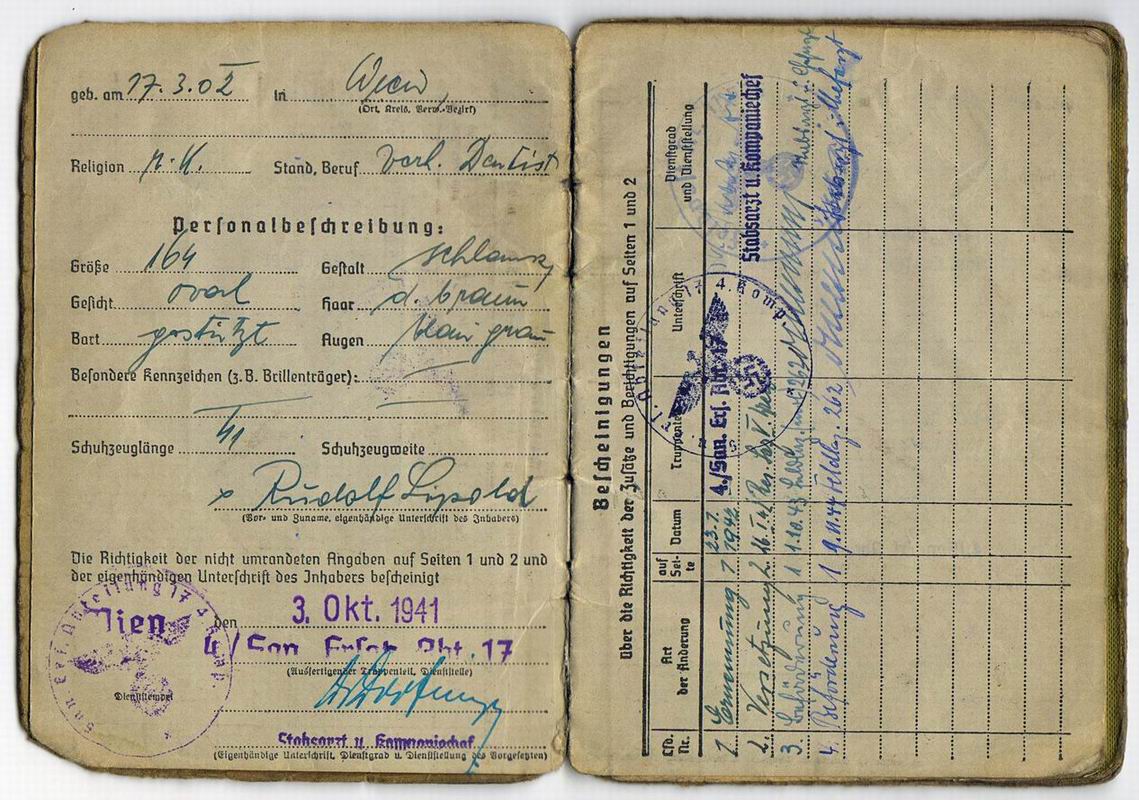 geb. am 17.3.02 in Wien
(Ort, Kreis, Verw.-Bezirk)
Religion r. K. Stand, Beruf verh. Dentist
Personalbeschreibung:
Größe 164 Gestalt schlank
Gesicht oval Haar d. braun
Bart gestutzt Augen blau grau
Besondere Kennzeichen (z. B. Brillenträger):
Schuhzeuglänge 41 Schuhzeugweite
x Rudolf Lipold
(Vor- und Zuname, eigenhändige Unterschrift des Inhabers)
Die Richtigkeit der nicht umrandeten Angaben auf Seiten 1 und 2 und
der eigenhändigen Unterschrift des Inhabers bescheinigt
Wien den 3. Okt. 1941
4./San. Ersatz Abt. 17
(Ausfertigender Truppenteil, Dienststelle)
Dienststempel
Stabsarzt u. Kompaniechef
(Eigenhändige Unterschrift, Dienstgrad u. Dienststellung des Vorgesetzten)
Bescheinigungen
über die Richtigkeit der Zusätze und Berichtigungen auf Seiten 1 und 2
Lfd. Nr. Art der Änderung auf Seite Datum Truppenteil Unterschrift Dienstgrad und Dienststellung
1. Ernennung 1 23.7. 1942 4./San. Ers. Abt. 17 Stabsarzt u. Kompaniechef
2. Versetzung
3. Beförderung 1 1.10.43
4. Beförderung 1 9.11.44 Feldlaz. 262